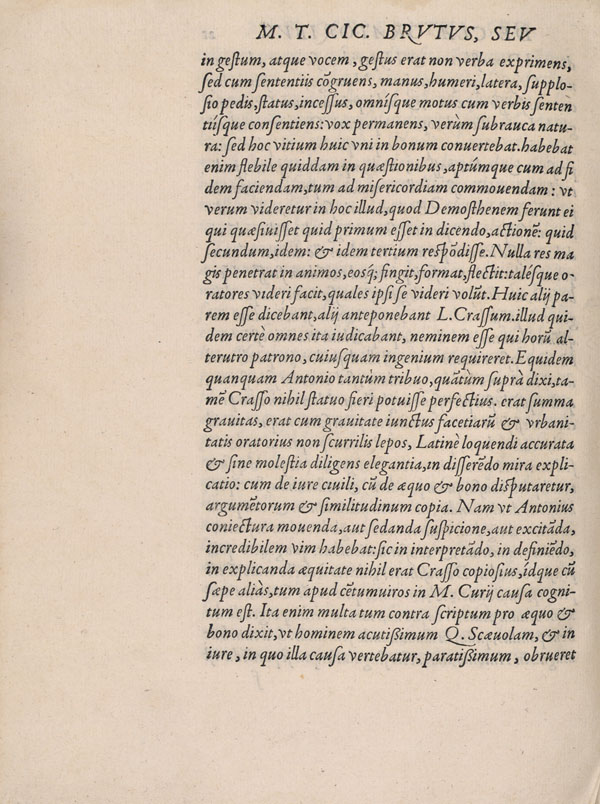 M. T. CIC. BRVTVS, SEV
in gestum, atque vocem, gestus erat non verba exprimens,
sed cum sententiis cōgruens, manus, humeri, latera, supplo-
sio pedis, status, incessus, omnísque motus cum verbis senten
tiísque consentiens: vox permanens, verùm subrauca natu-
ra: sed hoc vitium huic vni in bonum conuertebat. habebat
enim flebile quiddam in quæstionibus, aptúmque cum ad fi
dem faciendam, tum ad misericordiam commouendam: vt
verum videretur in hoc illud, quod Demosthenem ferunt ei
qui quæsiuisset quid primum esset in dicendo, actionē: quid
secundum, idem: & idem tertium respōdisse. Nulla res ma
gis penetrat in animos, eosq; fingit, format, flectit: talésque o-
ratores videri facit, quales ipsi se videri volūt. Huic alij pa-
rem esse dicebant, alij anteponebant L. Crassum. illud qui-
dem certè omnes ita iudicabant, neminem esse qui horū al-
terutro patrono, cuiusquam ingenium requireret. Equidem
quanquam Antonio tantùm tribuo, quātùm suprà dixi, ta-
mē Crasso nihil statuo fieri potuisse perfectius. erat summa
grauitas, erat cum grauitate iunctus facetiarū & vrbani-
tatis oratorius non scurrilis lepos, Latinè loquendi accurata
& sine molestia diligens elegantia, in differēdo mira expli-
catio: cum de iure ciuili, cū de æquo & bono disputaretur,
argumētorum & similitudinum copia. Nam vt Antonius
coniectura mouenda, aut sedanda suspicione, aut excitāda,
incredibilem vim habebat: sic in interpretādo, in definiēdo,
in explicanda æquitate nihil erat Crasso copiosius, ídque cū
sæpe aliàs, tum apud cētumuiros in M. Curij causa cogni-
tum est. Ita enim multa tum contra scriptum pro æquo &
bono dixit, vt hominem acutißimum Q. Scæuolam, & in
iure, in quo illa causa vertebatur, paratißimum, obrueret